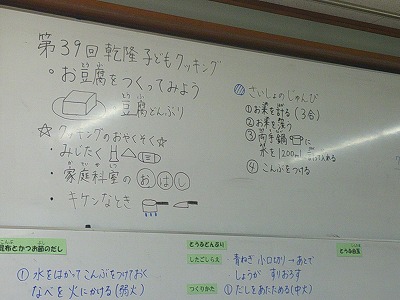 第39回 乾隆子どもクッキング
・お豆腐をつくってみよう
豆腐どんぶり
☆クッキングのおやくそく☆
・みじたく
・家庭科室のおはし
・キケンなとき
さいしょのじゅんび
①お米を計る(3合)
②お米を洗う
③両手鍋に
水を1200ml入れる
④こんぶをつける
昆布とかつお節のだし
①水をはかってこんぶをつけておく
なべを火にかける(弱火)
とうふどんぶり
したごしらえ
・青ねぎ 小口切り→あとで
しょうが すりおろす
つくりかた
①だしをあたためる(中火)